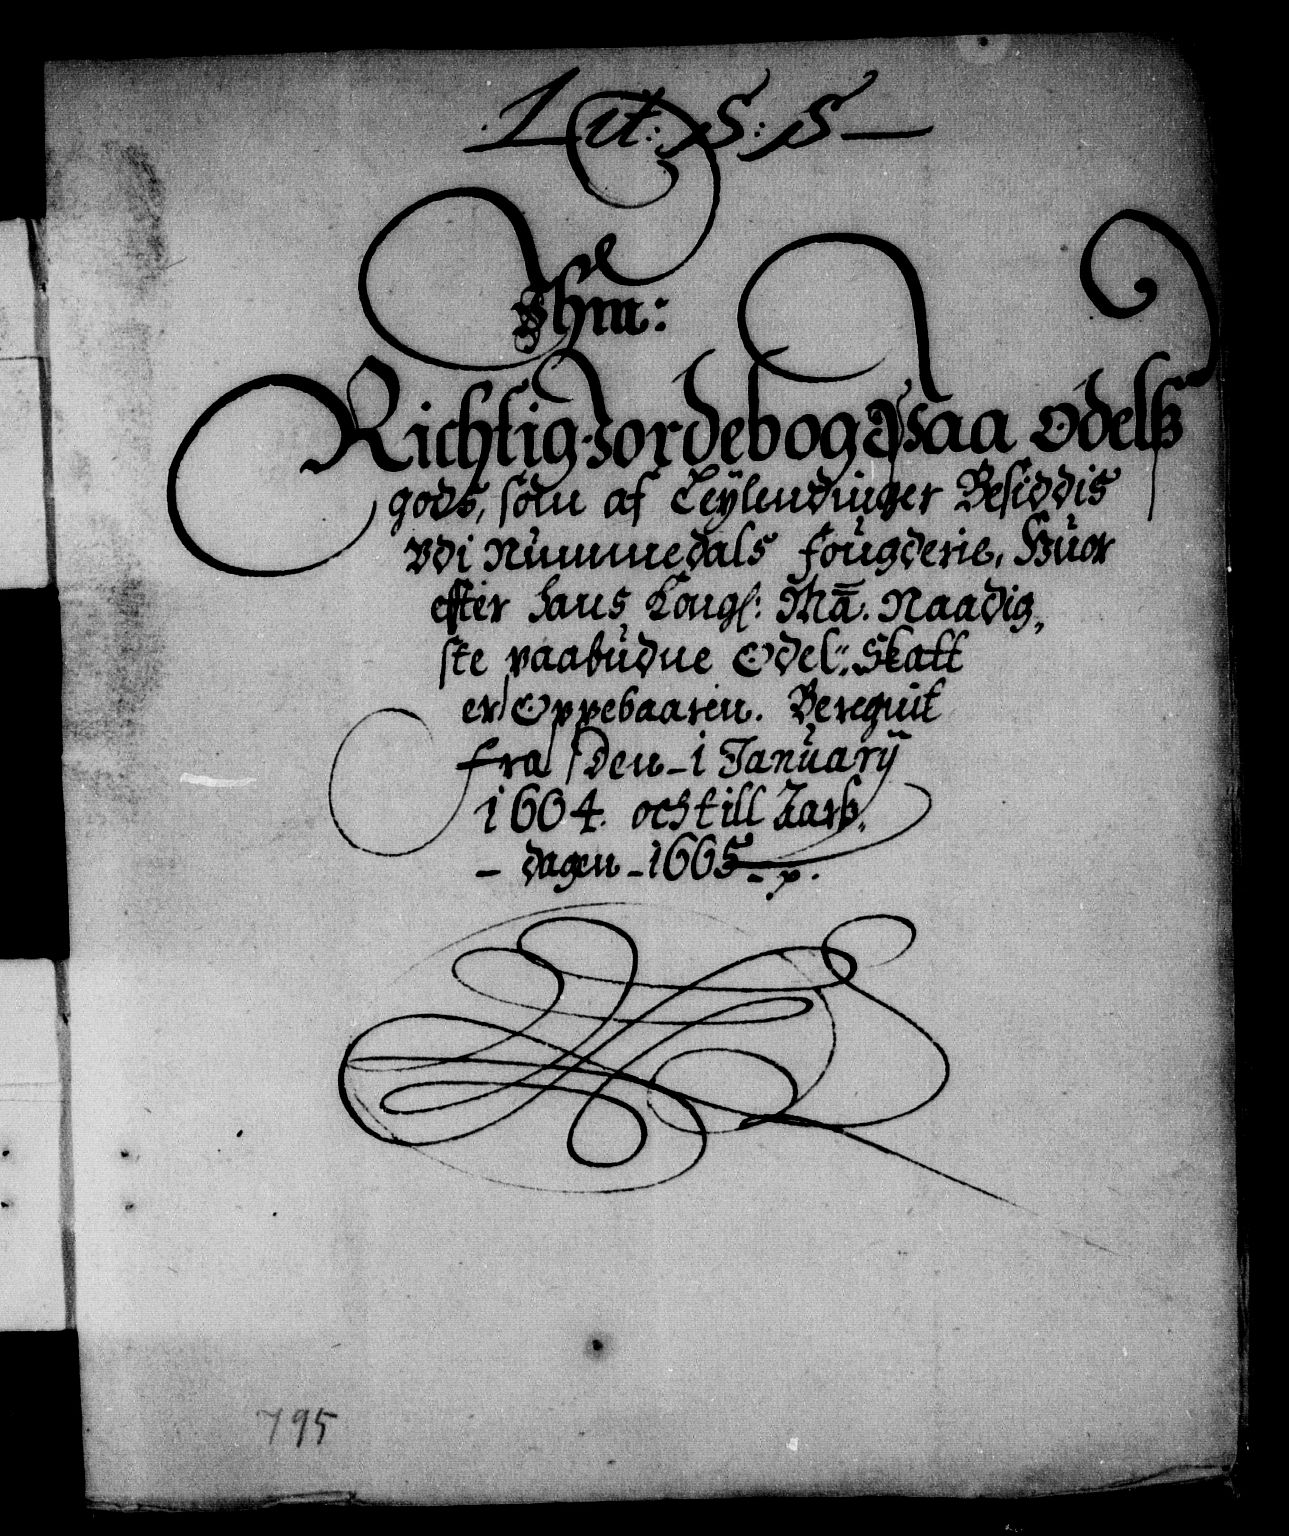 Lit: S: S
Ihm:
Richtig Jordebog Paa Odelß
gods, som af Leÿlendinger Besiddis
Vdi Nummedals fougderie, Huor
efter hans Kongl: Maÿ: Naadig,
ste paabudne Odel: Skatt
er Oppebaaren. Beregnit
fra den 1 Januarÿ
1664. och till Aarß,
dagen 1665
795